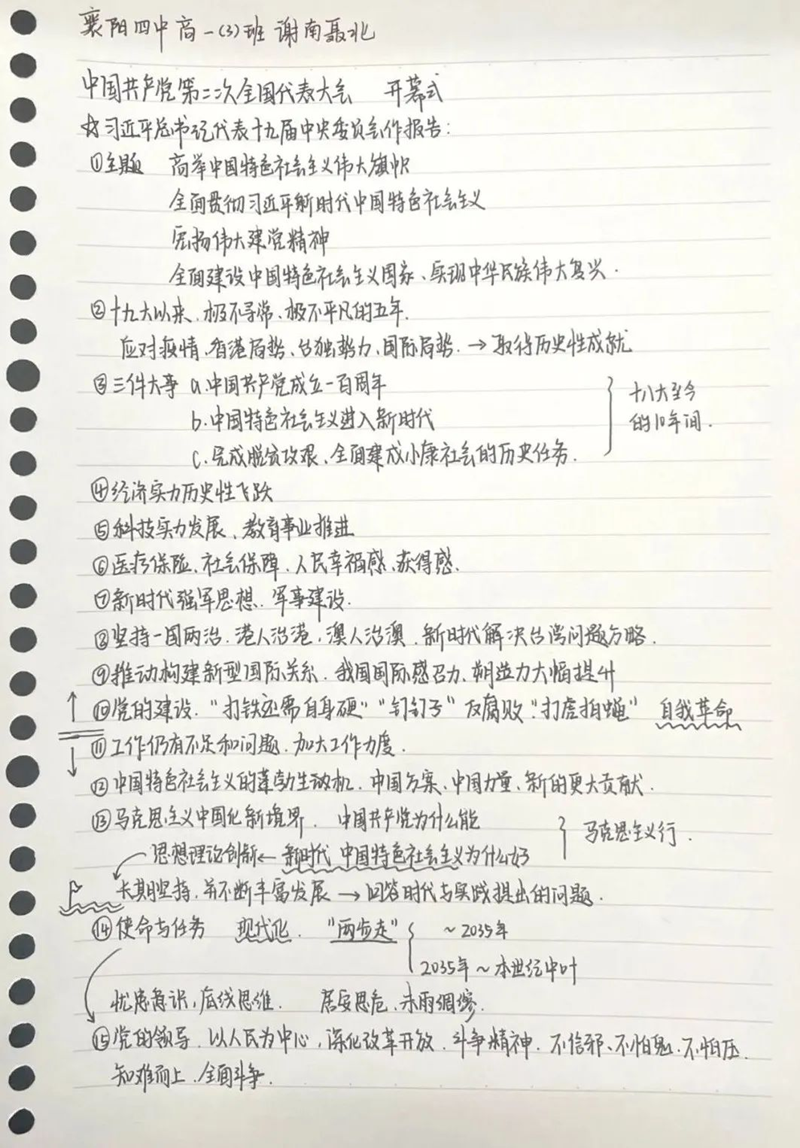 襄阳四中高一(3)班 谢南聂北
中国共产党第二次全国代表大会 开幕式
☆习近平总书记代表十九届中央委员会作报告:
①主题 高举中国特色社会主义伟大旗帜
全面贯彻习近平新时代中国特色社会主义
弘扬伟大建党精神
全面建设中国特色社会主义国家、实现中华民族伟大复兴.
②十九大以来、极不寻常、极不平凡的五年.
应对疫情、香港局势、台独势力、国际局势.→取得历史性成就
③三件大事 a.中国共产党成立一百周年
b.中国特色社会主义进入新时代
c.完成脱贫攻艰、全面建成小康社会的历史任务.
十八大至今
的10年间.
④经济实力历史性飞跃
⑤科技实力发展、教育事业推进
⑥医疗保险、社会保障、人民幸福感、获得感.
⑦新时代强军思想.军事建设.
⑧坚持一国两治.港人治港,澳人治澳.新时代解决台湾问题方略.
⑨推动构建新型国际关系.我国国际感召力、塑造力大幅提升
⑩党的建设.“打铁还需自身硬”“钉钉子”反腐败“打虎拍蝇” 自我革命
⑪工作仍有不足和问题.加大工作力度.
⑫中国特色社会主义的蓬勃生机.中国方案、中国力量、新的更大贡献.
⑬马克思主义中国化新境界. 中国共产党为什么能
马克思主义行.
思想理论创新←新时代 中国特色社会主义为什么好
长期坚持.并不断丰富发展→回答时代与实践提出的问题.
⑭使命与任务 现代化. “两步走” ~2035年
2035年~本世纪中叶
忧患意识,底线思维. 居安思危、未雨绸缪.
⑮党的领导.以人民为中心,深化改革开放.斗争精神.不信邪、不怕鬼.不怕压.
知难而上.全面斗争.